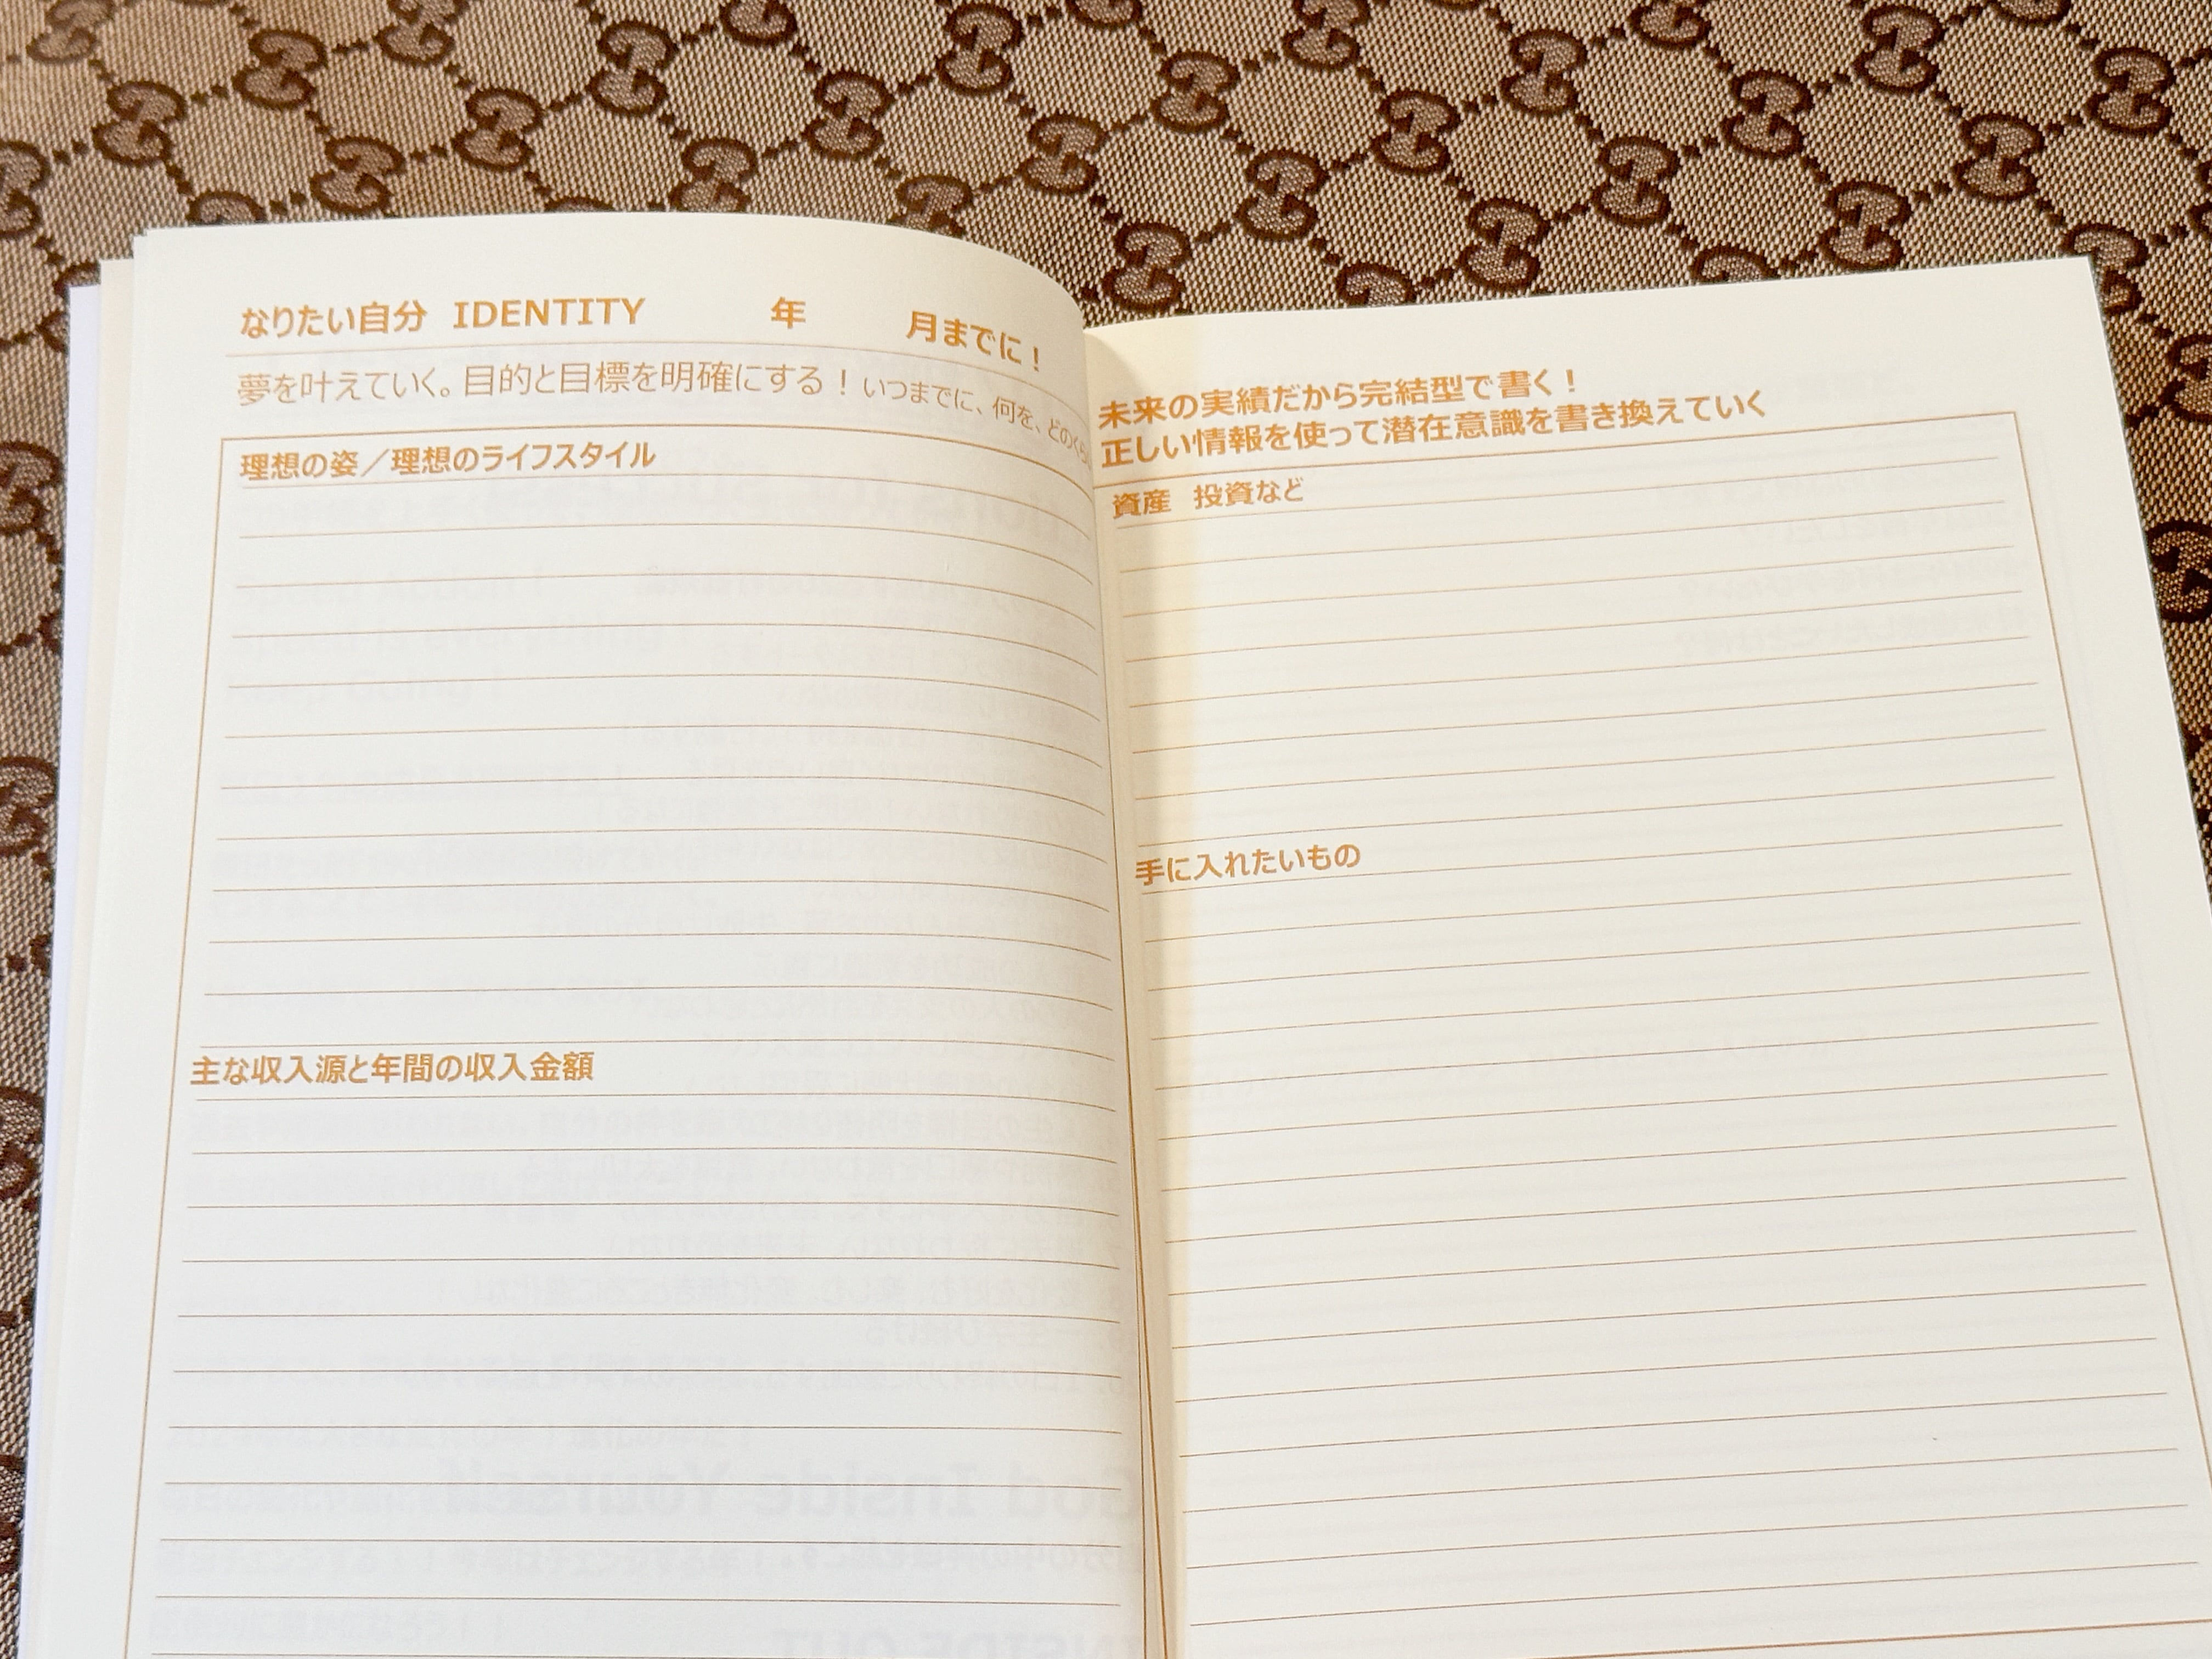 なりたい自分 IDENTITY 年 月までに！
夢を叶えていく。目的と目標を明確にする！いつまでに、何を、どのくら
理想の姿／理想のライフスタイル
主な収入源と年間の収入金額
未来の実績だから完結型で書く！
正しい情報を使って潜在意識を書き換えていく
資産 投資など
手に入れたいもの